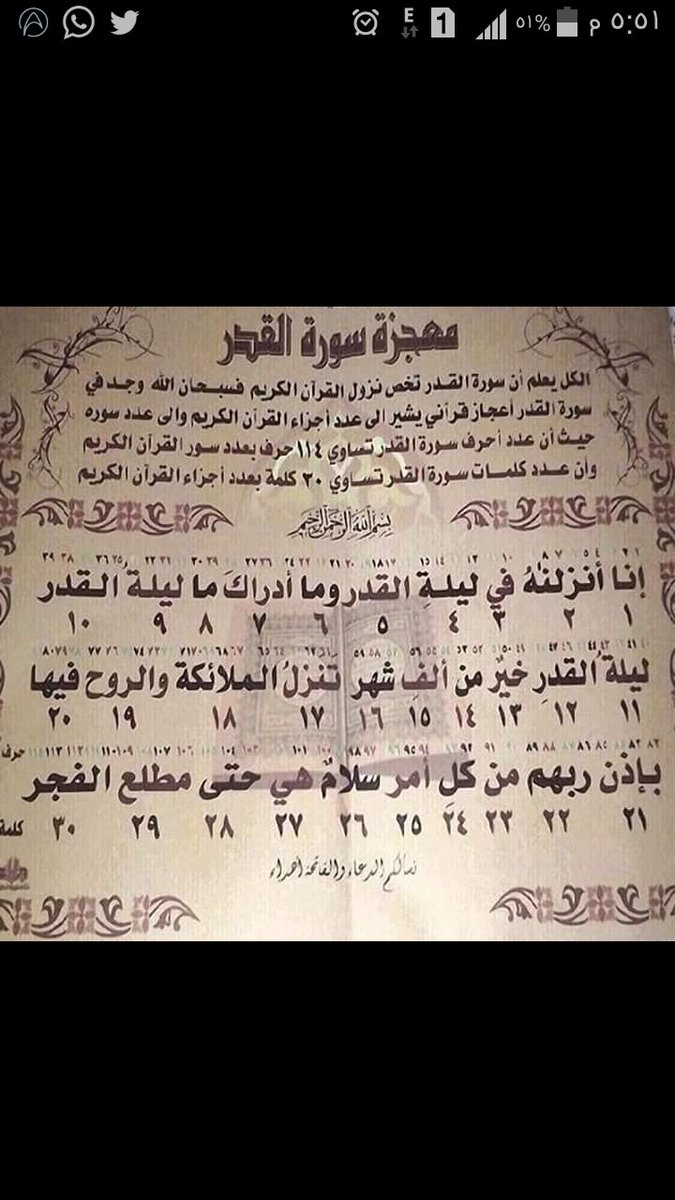 E 1 ٥١% م ٥:٥١
معجزة سورة القدر
الكل يعلم أن سورة القدر تخص نزول القرآن الكريم فسبحان الله وجد في
سورة القدر أعجاز قرآني يشير الى عدد أجزاء القرآن الكريم والى عدد سوره
حيث أن عدد أحرف سورة القدر تساوي ١١٤ حرف بعدد سور القرآن الكريم
وأن عدد كلمات سورة القدر تساوي ٣٠ كلمة بعدد أجزاء القرآن الكريم
بسم الله الرحمن الرحيم
إنا أنزلنٰهُ في ليلةِ القدر وما أدراكَ ما ليلة القدر
١ ٢ ٣ ٤ ٥ ٦ ٧ ٨ ٩ ١٠
ليلةُ القدرِ خيرٌ من ألفِ شهر تنزلُ الملائكة والروح فيها
١١ ١٢ ١٣ ١٤ ١٥ ١٦ ١٧ ١٨ ١٩ ٢٠
حرف
بإذن ربهم من كلِ أمر سلامٌ هي حتى مطلع الفجر
٢١ ٢٢ ٢٣ ٢٤ ٢٥ ٢٦ ٢٧ ٢٨ ٢٩ ٣٠ كلمة
نسألكم الدعاء والفاتحة اهداء